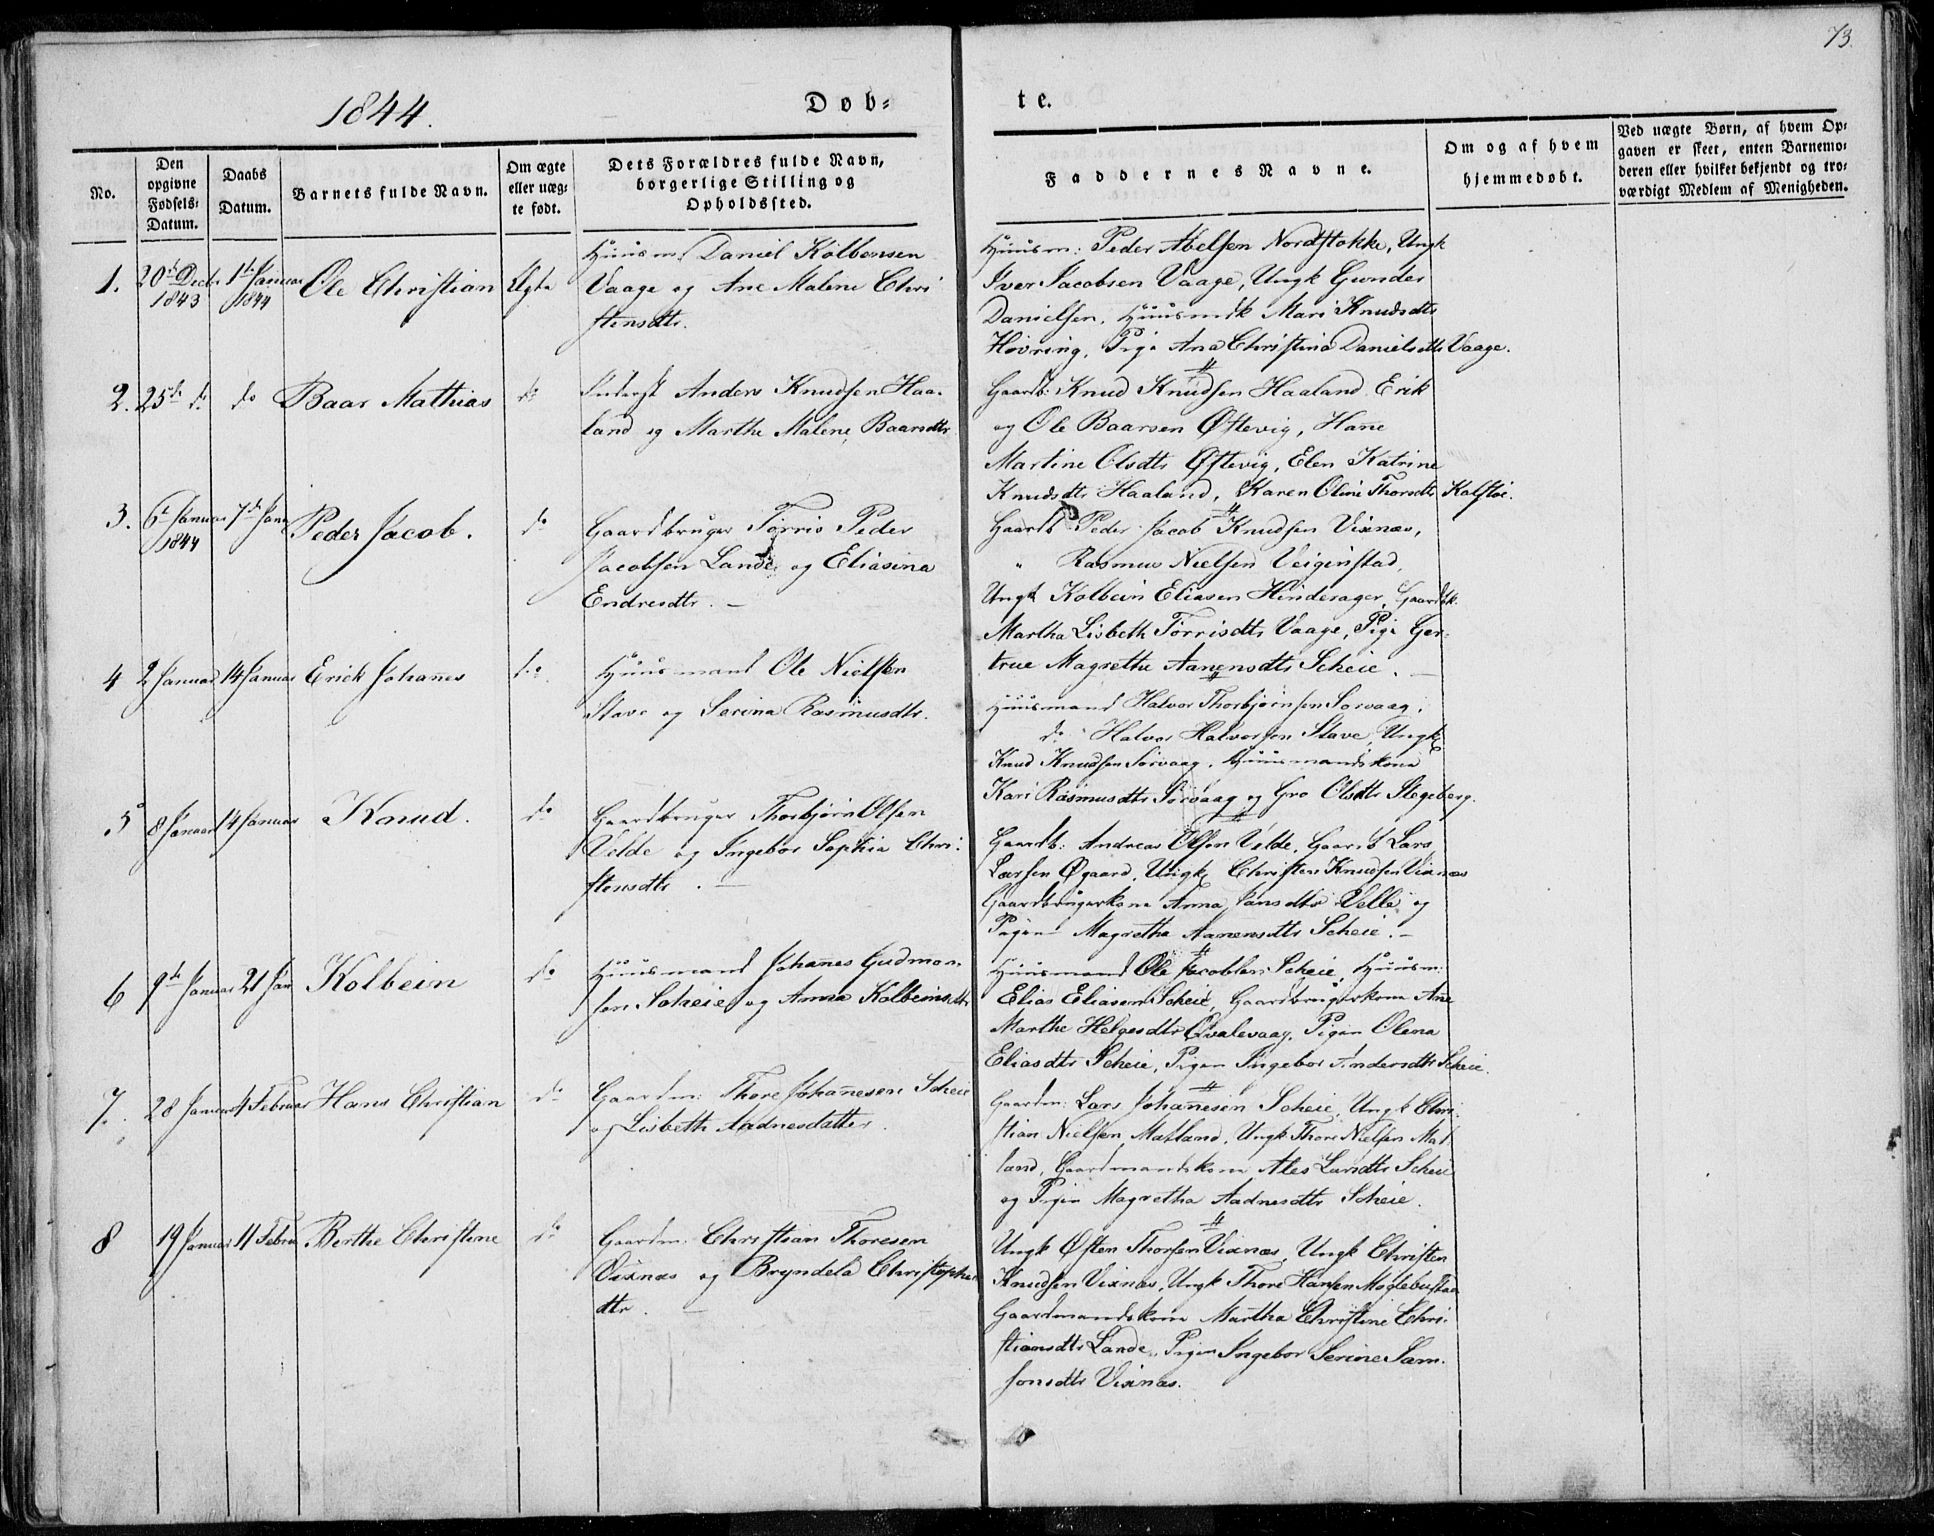 73.
1844.
Døb=
te.
No.
Den opgivne Fødsels= Datum.
Daabs Datum.
Barnets fulde Navn.
Om ægte eller uæg= te født.
Dets Forældres fulde Navn, borgerlige Stilling og Opholdssted.
Faddernes Navne.
Om og af hvem hjemmedøbt.
Ved uægte Børn, af hvem Op= gaven er skeet, enten Barnemo= deren eller hvilket bekjendt og tro= værdigt Medlem af Menigheden.
1. 20de Decbr 1843 1ste Januar 1844 Ole Christian Ægte
Huusm. Daniel Kolbensen
Vaage og Ane Malene Chri
stensdtr.
Huusm: Peder Abelsen Nordstokke, Ungk
Iver Jacobsen Vaage, Ungk Gunder
Danielsen, Huusmdk Mari Knudsdtr
Høvring, Pige Ana Christina Danielsdtr Vaage.
2. 25de do do Baar Mathias do
Inderst Anders Knudsen Haa=
land og Marthe Malene Baarsdtr
Gaardb: Knud Knudsen Haaland Erik
og Ole Baarsen Østevig, Hanne
Martine Olsdtr Østevig, Elen Katrine
Knudsdtr Haaland, Karen Oline Thorsdtr Kalstøe.
3. 6te Januar 1844 7de Janu Peder Jacob. do
Gaardbruger Torris Peder
Jacobsen Lande og Eliasina
Endresdtr. —
Gaardb Peder Jacob Knudsen Vixnæs,
" Rasmus Nielsen Veiginstad,
Ungk Kolbein Eliasen Hinderager, Gaardbk.
Martha Lisbeth Torrisdtr Vaage, Pige Ger=
true Magrethe Aanensdtr Scheie. —
4 2 Januar 14 Januar Erick Johanes do
Huusmand Ole Nielsen
Stave og Serina Rasmusdtr.
Huusmand Halvor Thorbjørnsen Sørvaag,
do Halvor Halvorsen Stave, Ungk
Knud Knudsen Sørvaag, Huusmandskone
Kari Rasmusdtr Sørvaag og Gro Olsdtr Stegeberg.
5 8 Januar 14 Januar Knud. do
Gaardbruger Thorbjørn Olsen
Velde og Ingebor Sophia Chri=
stensdtr. —
Gaardb: Andreas Olsen Velde, Gaardb Lars
Larsen Øgaard, Ungk Christen Knudsen Vixnæs
Gaardbrugerkone Anna Jansdtr Velle og
Pigen Magretha Aanensdtr Scheie. —
6 9de Januar 21 Jan Kolbein do
Huusmand Johannes Gudmon=
sen Scheie og Anna Kolbeinsdtr
Huusmand Ole Jacobsen Scheie, Huusm:
Elias Eliasen Scheie, Gaardbrugerkone Ane
Marthe Helgesdtr Qvalevaag, Pigen Olena
Eliasdtr Scheie, Pigen Ingebor Andersdtr Scheie.
7. 28 Januar 4 Februar Hans Christian do
Gaardm: Thore Johannesen Scheie
og Lisbeth Aadnesdatter.
Gaardm: Lars Johannesen Scheie, Ungk Chri=
stian Nielsen Matland, Ungk Thore Nielsen Mat
land, Gaardmandskone Ales Larsdtr Scheie
og Pigen Magretha Aadnesdtr Scheie.
8 19 Januar 11 Febru Berthe Christine do
Gaardm: Christian Thoresen
Vixnæs og Bryndela Christophers
dtr. —
Ungk Østen Thorsen Vixnæs, Ungk Christen
Knudsen Vixnæs, Ungk Thore Hansen Moglebustad
Gaardmandskone Martha Christine Chri=
stiansdtr Lande, Pigen Ingebor Serine Sam=
sonsdtr Vixnæs.